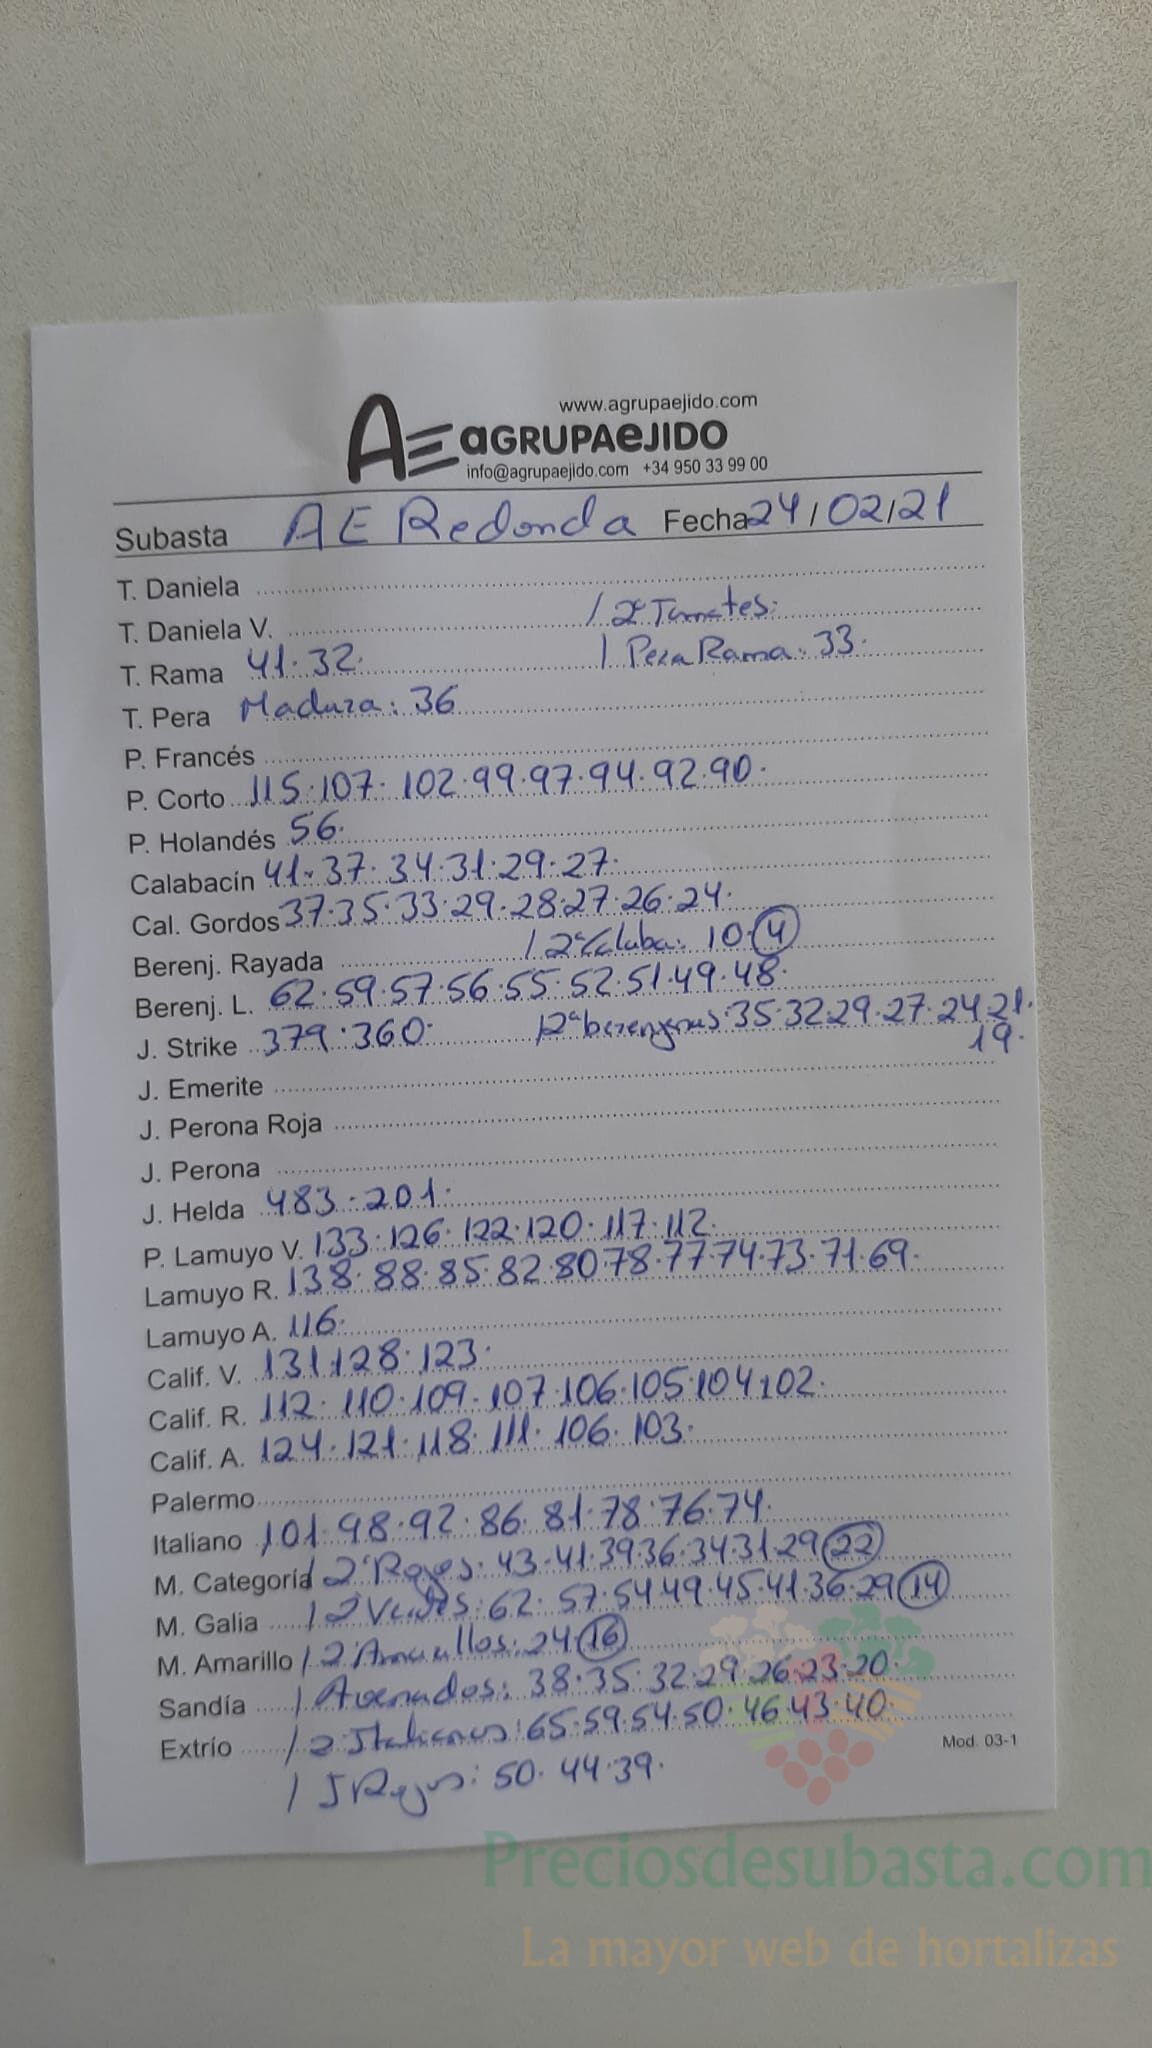 www.agrupaejido.com
AE aGRUPAeJIDO
info@agrupaejido.com +34 950 33 99 00
Subasta AE Redonda Fecha 24/02/21
T. Daniela
T. Daniela V. / 2ª Tomates:
T. Rama 41.32. / Pera Rama: 33.
T. Pera Madura: 36
P. Francés
P. Corto 115.107.102.99.97.94.92.90.
P. Holandés 56.
Calabacín 41.37.34.31.29.27.
Cal. Gordos 37.35.33.29.28.27.26.24.
Berenj. Rayada / 2ª Calaba: 10.4
Berenj. L. 62.59.57.56.55.52.51.49.48.
J. Strike 379.360. / 2ª berengenas: 35.32.29.27.24.21.
19.
J. Emerite
J. Perona Roja
J. Perona
J. Helda 483.201.
P. Lamuyo V. 133.126.122.120.117.112.
Lamuyo R. 138.88.85.82.80.78.77.74.73.71.69.
Lamuyo A. 116.
Calif. V. 131.128.123.
Calif. R. 112.110.109.107.106.105.104.102.
Calif. A. 124.121.118.111.106.103.
Palermo
Italiano 101.98.92.86.81.78.76.74.
M. Categoría / 2ª Rojos: 43.41.39.36.34.31.29 22
M. Galia / 2 Verdes: 62.57.54.49.45.41.36.29 14
M. Amarillo / 2 Amarillos: 24.16
Sandía / Asurados: 38.35.32.29.26.23.20.
Extrío / 2 Italianos: 65.59.54.50.46.43.40.
/ I Rojos: 50.44.39.
Mod. 03-1
Preciosdesubasta.com
La mayor web de hortalizas